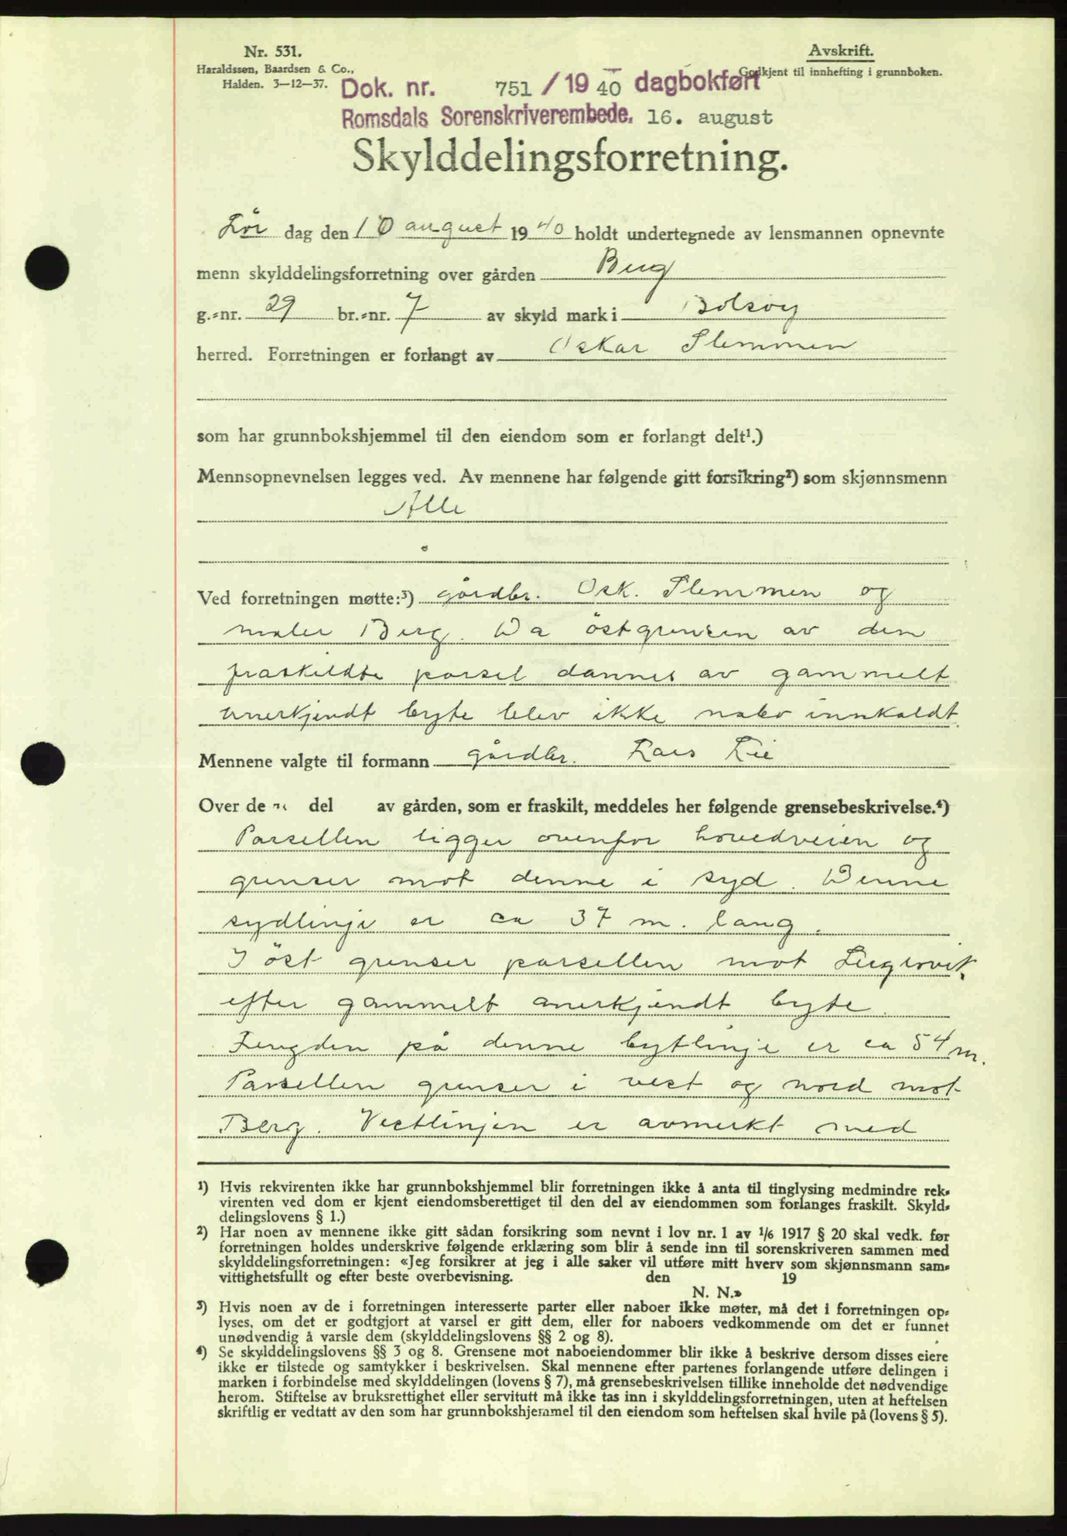 Nr. 531.
Haraldssen, Baardsen & Co.,
Halden. 3—12—37.
Avskrift.
Godkjent til innhefting i grunnboken.
Dok. nr. 751 / 19 40 dagbokført
Romsdals Sorenskriverembede. 16. august
Skylddelingsforretning.
Lør dag den 10 august 1940 holdt undertegnede av lensmannen opnevnte
menn skylddelingsforretning over gården Berg
g.-nr. 29 br.-nr. 7 av skyld mark i Bolsøy
herred. Forretningen er forlangt av Oskar Flemmen
som har grunnbokshjemmel til den eiendom som er forlangt delt¹.)
Mennsopnevnelsen legges ved. Av mennene har følgende gitt forsikring²) som skjønnsmenn
Alle
Ved forretningen møtte:³) gårdbr. Osk. Flemmen og
maler Berg. Da östgrensen av den
fraskildte parsel dannes av gammelt
anerkjendt byte blev ikke nabo innkaldt.
Mennene valgte til formann gårdbr. Lars Lie
Over de n del av gården, som er fraskilt, meddeles her følgende grensebeskrivelse.⁴)
Parsellen ligger ovenfor hovedveien og
grenser mot denne i syd. Denne
sydlinje er ca 37 m. lang.
I öst grenser parsellen mot
efter gammelt anerkjendt byte.
Lengden på denne bytlinje er ca 54 m.
Parsellen grenser i vest og nord mot
Berg. Vestlinjen er avmerkt med
¹) Hvis rekvirenten ikke har grunnbokshjemmel blir forretningen ikke å anta til tinglysing medmindre rek-
virenten ved dom er kjent eiendomsberettiget til den del av eiendommen som forlanges fraskilt. Skyld-
delingslovens § 1.)
²) Har noen av mennene ikke gitt sådan forsikring som nevnt i lov nr. 1 av 1/6 1917 § 20 skal vedk. før
forretningen holdes underskrive følgende erklæring som blir å sende inn til sorenskriveren sammen med
skylddelingsforretningen: «Jeg forsikrer at jeg i alle saker vil utføre mitt hverv som skjønnsmann sam-
vittighetsfullt og efter beste overbevisning. den 19
N. N.»
³) Hvis noen av de i forretningen interesserte parter eller naboer ikke møter, må det i forretningen op-
lyses, om det er godtgjort at varsel er gitt dem, eller for naboers vedkommende om det er funnet
unødvendig å varsle dem (skylddelingslovens §§ 2 og 8).
⁴) Se skylddelingslovens §§ 3 og 8. Grensene mot naboeiendommer blir ikke å beskrive dersom disses eiere
ikke er tilstede og samtykker i beskrivelsen. Skal mennene efter partenes forlangende utføre delingen i
marken i forbindelse med skylddelingen (lovens § 7), må grensebeskrivelsen tillike inneholde det nødvendige
herom. Stiftelse av bruksrettighet eller servitutt må ikke tas inn i skylddelingsforretningen, uten at heftelsen
skriftlig er vedtatt av den som har grunnbokshjemmel til den eiendom som heftelsen skal hvile på (lovens § 5).